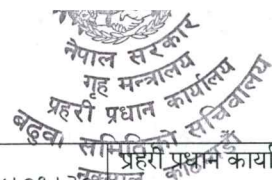 नेपाल सरकार
गृह मन्त्रालय
प्रहरी प्रधान कार्यालय
बढुवा समितिको सचिवालय
नक्साल काठमाडौं
प्रहरी प्रधान कार्या